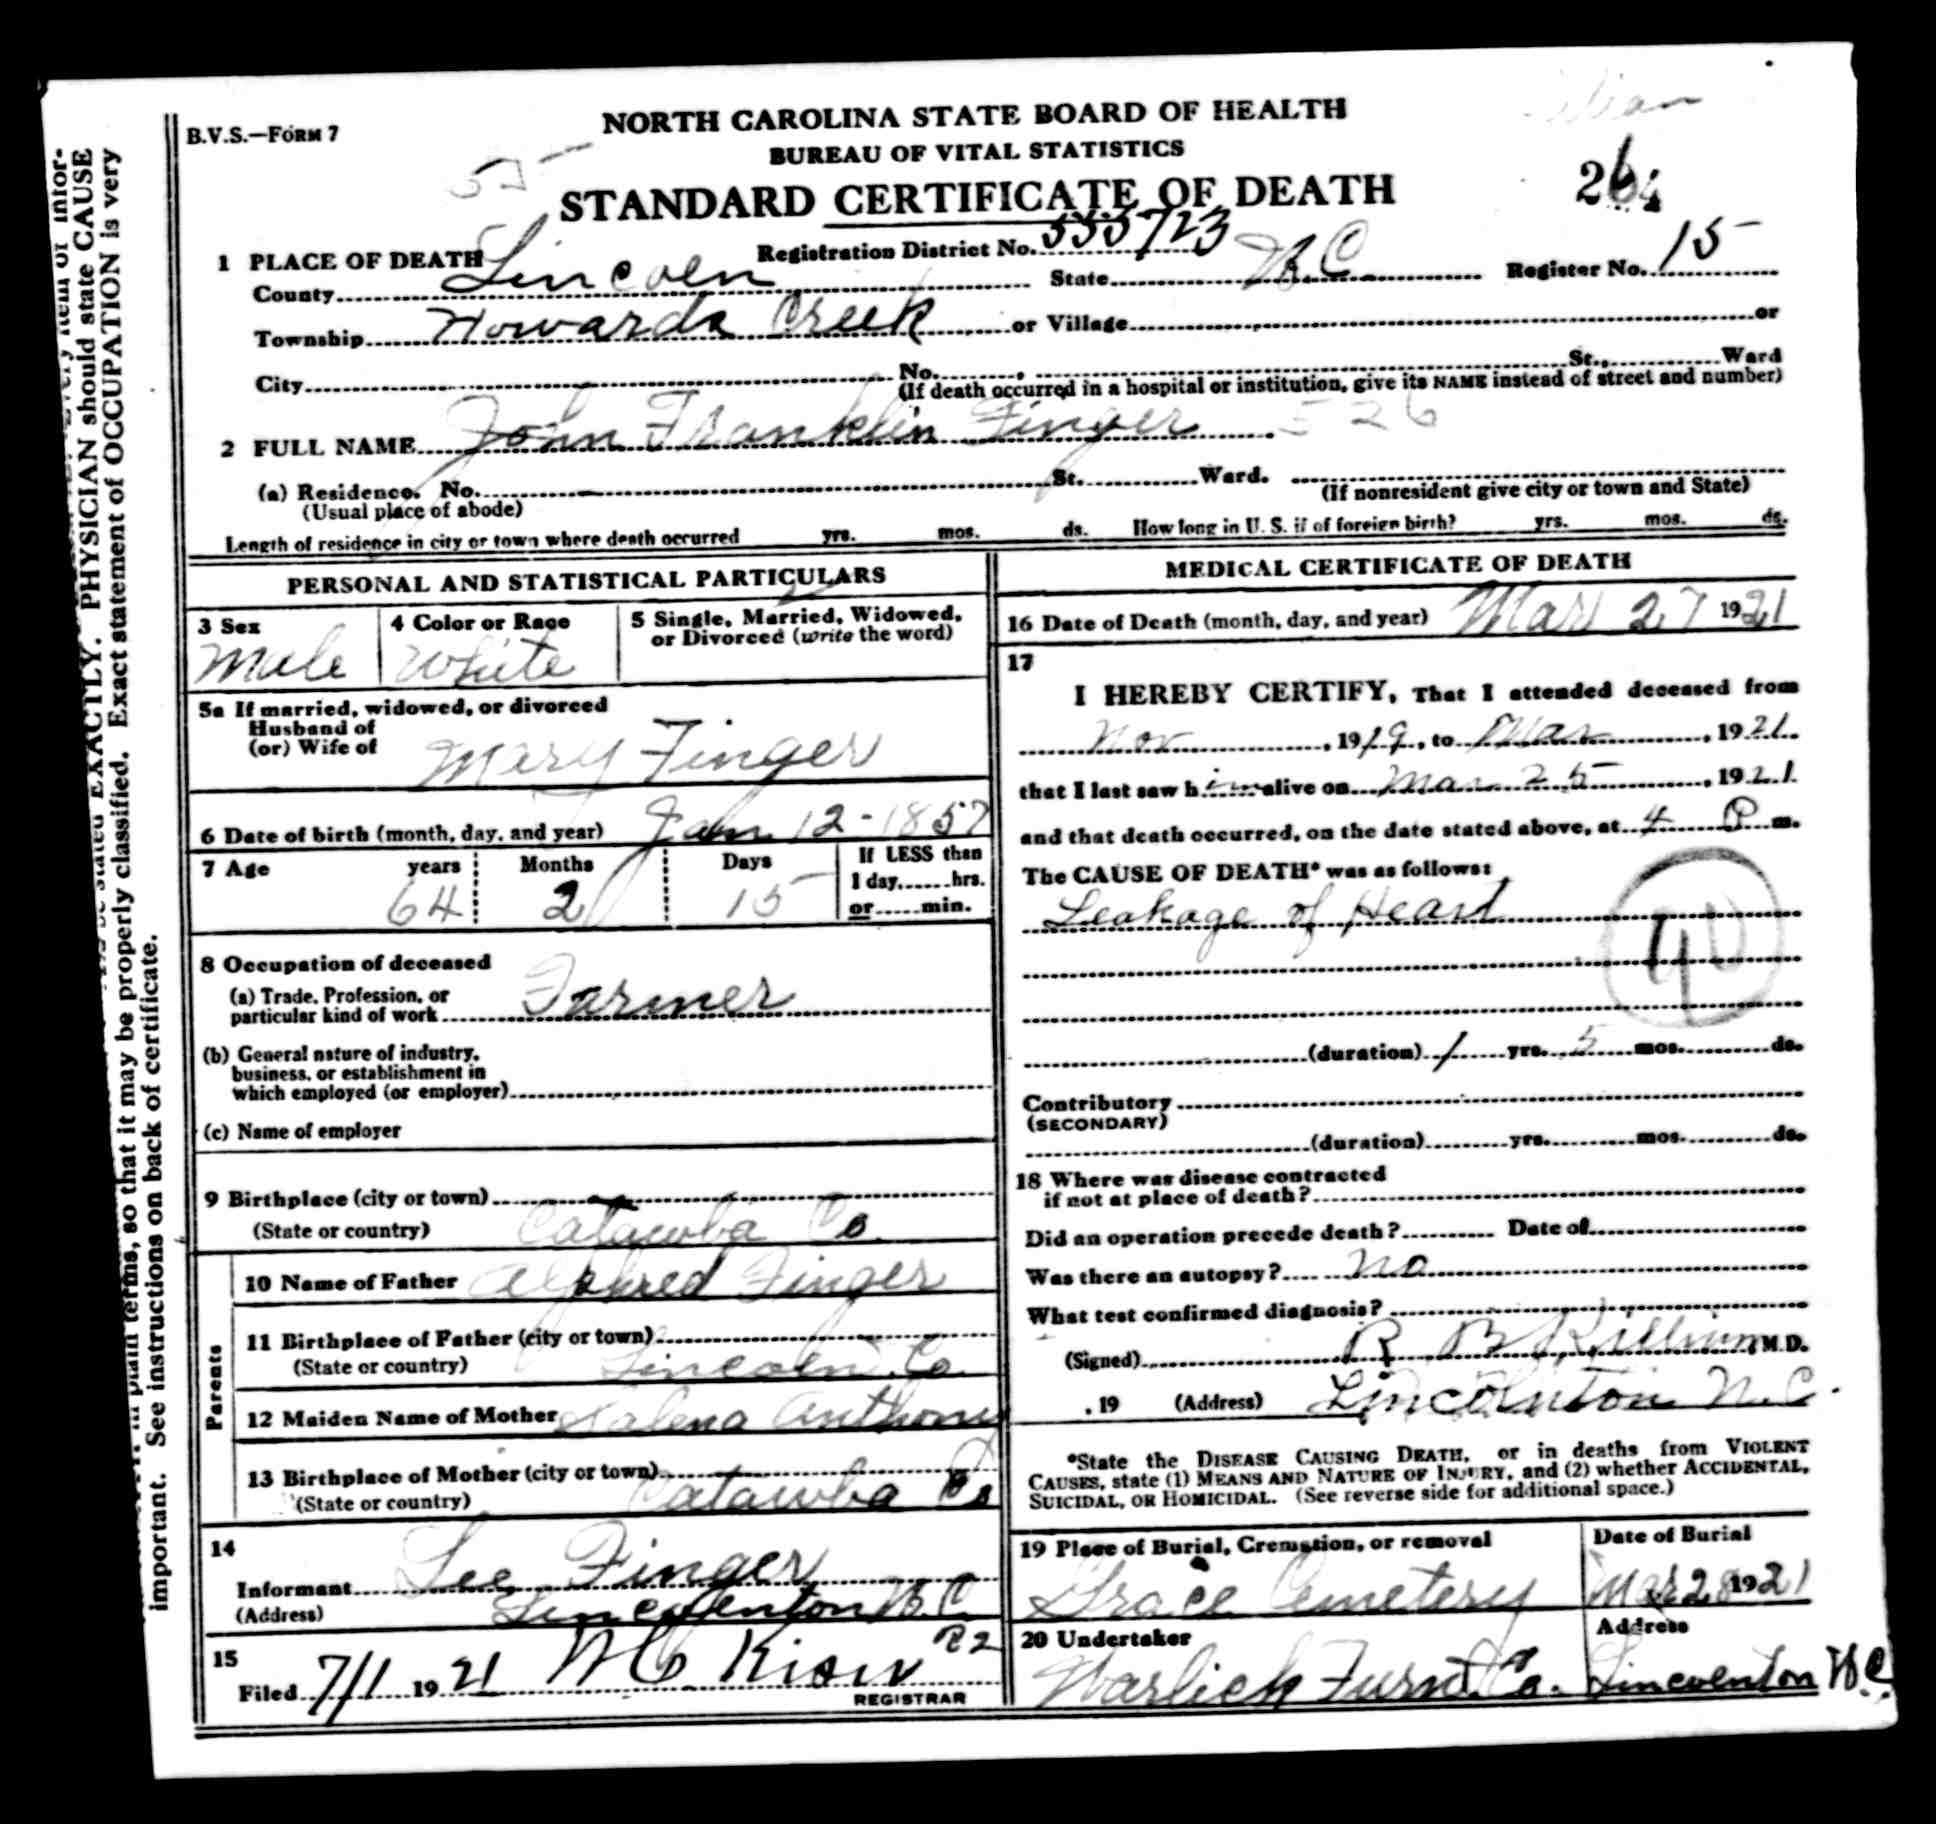 B.V.S.—FORM 7
NORTH CAROLINA STATE BOARD OF HEALTH
BUREAU OF VITAL STATISTICS
STANDARD CERTIFICATE OF DEATH
1 PLACE OF DEATH Registration District No. 555723
County Lincoln State N.C. Register No. 15
Township Howards Creek or Village or
City No. St., Ward
(If death occurred in a hospital or institution, give its NAME instead of street and number)
2 FULL NAME John Franklin Finger 526
(a) Residence. No. St. Ward.
(Usual place of abode) (If nonresident give city or town and State)
Length of residence in city or town where death occurred yrs. mos. ds. How long in U. S. if of foreign birth? yrs. mos. ds.
PERSONAL AND STATISTICAL PARTICULARS
3 Sex 4 Color or Race 5 Single, Married, Widowed,
or Divorced (write the word)
Male White
5a If married, widowed, or divorced
Husband of
(or) Wife of Mary Finger
6 Date of birth (month, day, and year) Jan 12-1857
7 Age years Months Days If LESS than
1 day,......hrs.
64 2 15 or......min.
8 Occupation of deceased
(a) Trade, Profession, or
particular kind of work Farmer
(b) General nature of industry,
business, or establishment in
which employed (or employer)
(c) Name of employer
9 Birthplace (city or town)
(State or country) Catawba Co.
Parents
10 Name of Father Alphred Finger
11 Birthplace of Father (city or town)
(State or country) Lincoln Co.
12 Maiden Name of Mother Anthony
13 Birthplace of Mother (city or town)
(State or country) Catawba Co
14
Informant Lee Finger
(Address) Lincolnton N.C.
15
Filed 7/1 1921
REGISTRAR
MEDICAL CERTIFICATE OF DEATH
16 Date of Death (month, day, and year) Mar 27 1921
17
I HEREBY CERTIFY, That I attended deceased from
Nov, 1919, to Mar, 1921.
that I last saw him alive on Mar 25, 1921
and that death occurred, on the date stated above, at 4 P m.
The CAUSE OF DEATH* was as follows:
Leakage of Heart
90
(duration) 1 yrs. 5 mos. ds.
Contributory
(SECONDARY)
(duration) yrs. mos. ds.
18 Where was disease contracted
if not at place of death?
Did an operation precede death? Date of
Was there an autopsy? No
What test confirmed diagnosis?
(Signed) R B Killian, M.D.
, 19 (Address) Lincolnton N.C.
*State the DISEASE CAUSING DEATH, or in deaths from VIOLENT
CAUSES, state (1) MEANS AND NATURE OF INJURY, and (2) whether ACCIDENTAL,
SUICIDAL, OR HOMICIDAL. (See reverse side for additional space.)
19 Place of Burial, Cremation, or removal Date of Burial
Grace Cemetery Mar 28 1921
20 Undertaker Address
Warlick Furn. Co. Lincolnton N.C.
be stated EXACTLY. PHYSICIAN should state CAUSE
in plain terms, so that it may be properly classified. Exact statement of OCCUPATION is very
important. See instructions on back of certificate.